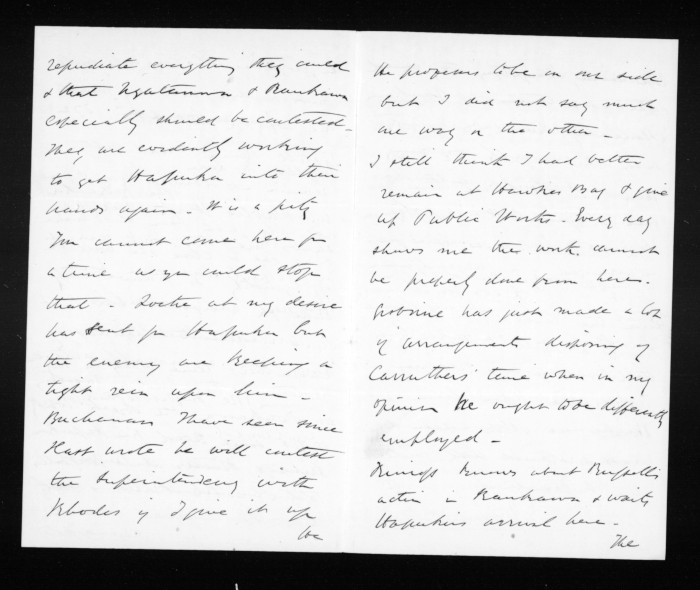 repudiate everything they could
& that Ngatarawa & Raukawa
especially should be contested -
They are evidently working
to get Hapuku into their
hands again - It is a pity
You cannot come here for
a time as you could stop
that - Locke at my desire
has sent for Hapuku but
the enemy are keeping a
tight rein upon him -
Buchanan I have seen since
I last wrote he will contest
the Superintendency with
Rhodes if I give it up
He
He professes to be on our side
but I did not say much
one way or the other -
I still think I had better
remain at Hawkes Bay & give
up Public Works - Every day
shows me the work cannot
be properly done from here -
Gisborne has just made a lot
of arrangements disposing of
Carruthers' time when in my
opinion he ought to be differently
employed -
knows about Russell's
action in Raukawa & waits
Hapuku's arrival here -
The